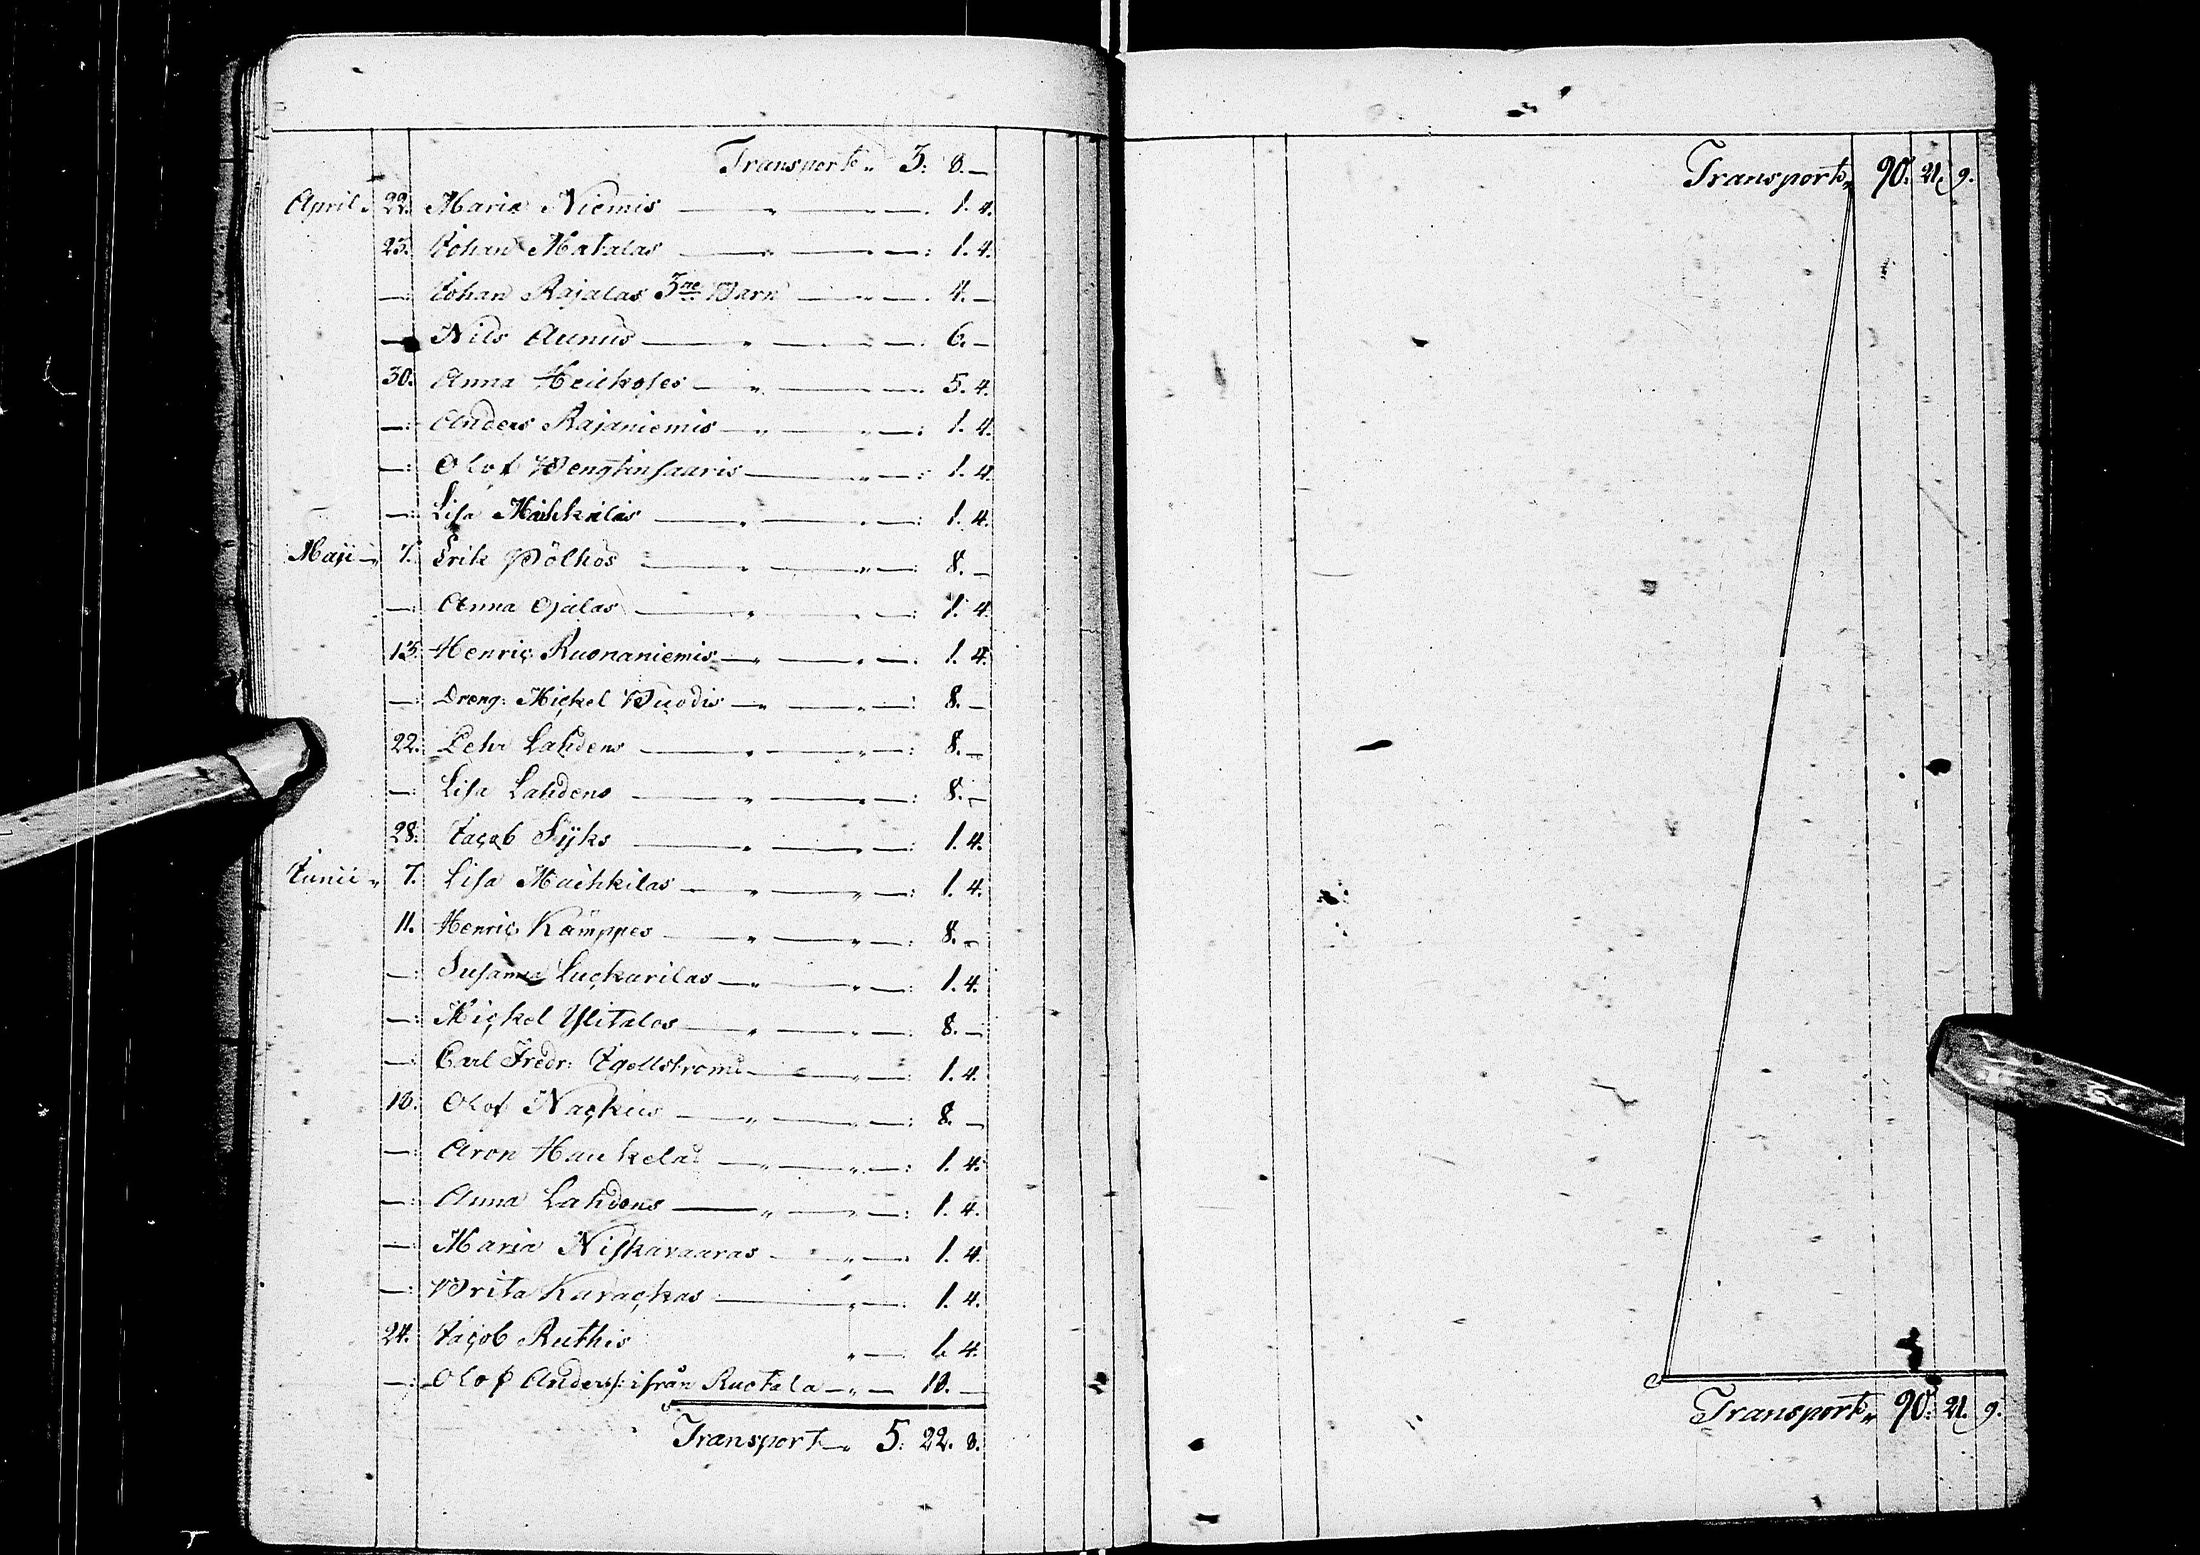 Transport „ 3. 8. —
April. 22. Maria Niemis — „ — „ —. 1. 4.
23. Johan Matalas — „ — „ —: 1. 4.
—: Johan Rajalas 3ne Barn — „ —. 4. —
— Nils Aunus — „ — „ —. 6. —
30. Anna Heickoses — „ — „ —. 5. 4.
—: Anders Rajaniemis — „ — „ —: 1. 4.
—: Olof Wengtinsaaris — „ —: 1. 4.
—: Lisa Machkilas — „ — „ —: 1. 4.
Maji — 7. Erik Pölkös — „ — „ —: 8. —
—: Anna Ojalas — „ — „ —: 1. 4.
13. Henric Ruonaniemis — „ — „ —. 1. 4.
—: Dreng: Mickel Wuodis — „ — „ —: 8. —
22. Pehr Lahdens — „ — „ —: 8. —
—: Lisa Lahdens — „ — „ —: 8. —
28. Jacob Sijks — „ — „ —: 1. 4.
Junii „ 7. Lisa Machkilas — „ — „ —: 1. 4.
11. Henric Kämppes — „ — „ —: 8. —
—: Susanna Luckarilas — „ — „ —: 1. 4.
—: Mickel Ylitalos — „ — „ —: 8. —
—: Carl Fredr: Igellströms — „ —: 1. 4.
18. Olof Nackius — „ — „ —: 8. —
—: Aron Haukelas — „ — „ —: 1. 4.
—: Anna Lahdens — „ — „ —: 1. 4.
—: Maria Niskavaaras — „ —. 1. 4.
—: Brita Karackas — „ —: 1. 4.
24. Jacob Ruthis „ —. 1. 4.
—: Olof Anders: ifrån Ruotala — „ — 18. —
Transport — „ 5. 22. 8.
Transport „ 90. 21. 9.
Transport „ 90. 21. 9.